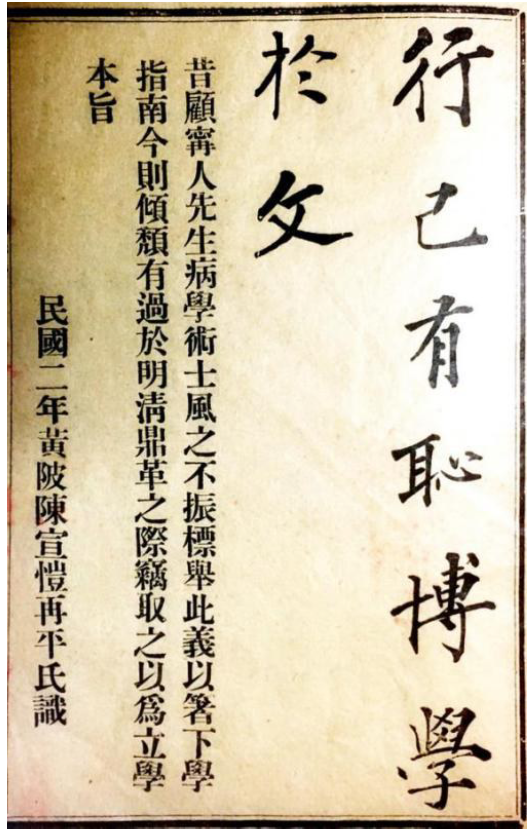 行己有恥博學
於文
昔顧甯人先生病學術士風之不振標舉此義以箸下學
指南今則傾頽有過於明淸鼎革之際竊取之以爲立學
本旨
民國二年黃陂陳宣愷再平氏識